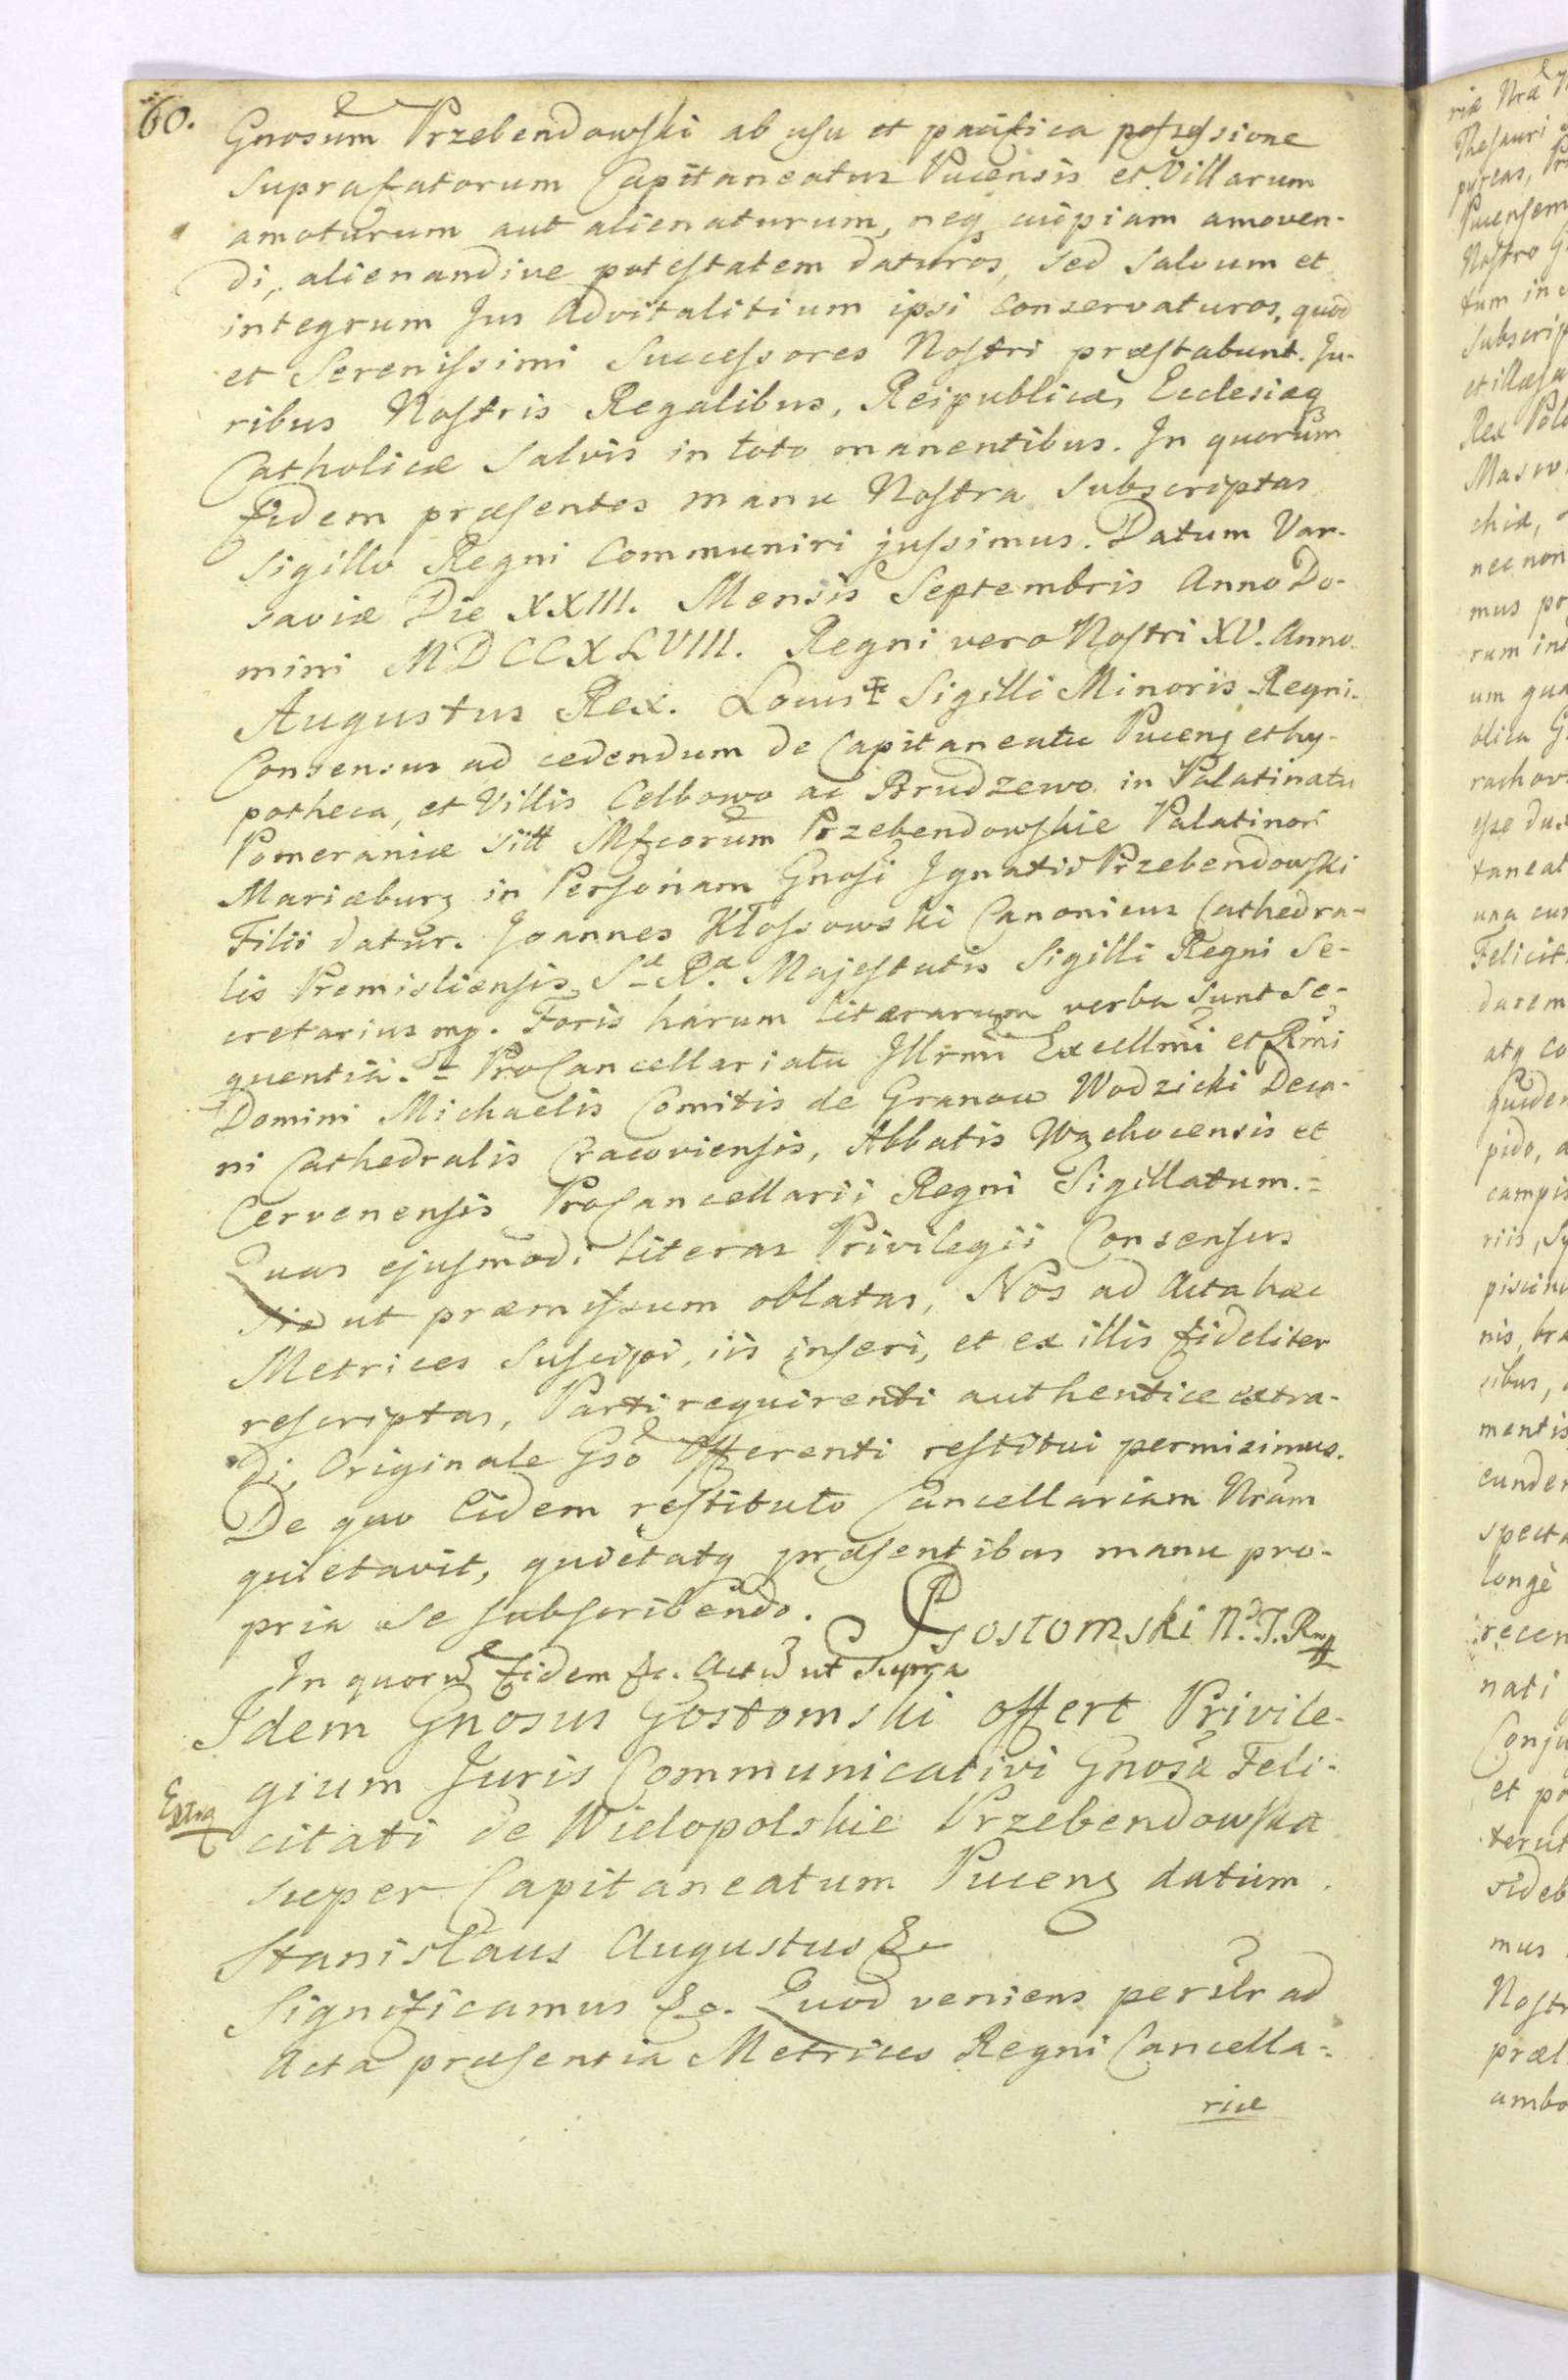 60.
Gnosum Przebendowski ab usu et pacifica possessione
suprafatorum Capitaneatus Pucensis et Villarum
amoturum aut alienaturum, neq cuipiam amoven-
di, alienandive potestatem daturos, sed salvum et
integrum Jus Advitalitium ipsi conservaturos, quod
et Serenissimi Successores Nostri præstabunt. Ju-
ribus Nostris Regalibus, Reipublicæ, Ecclesiæq
Catholicæ salvis in toto manentibus. In quorum
fidem præsentes manu Nostra subscriptas
Sigillo Regni Communiri jussimus. Datum Var-
saviæ Die XXIII. Mensis Septembris Anno Do-
mini MDCCXLVIII. Regni vero Nostri XV. Anno.
Augustus Rex. Locus Sigilli Minoris Regni.
Consensus ad cedendum de Capitaneatu Pucens et hy-
potheca, et Villis Celbowo ac Brudzewo in Palatinatu
Pomeraniæ sitt Mfcorum Przebendowskie Palatinori
Mariæburg in Personam Gnosi Ignatii Przebendowski
Filii datur. Joannes Kłossowski Canonicus Cathedra-
lis Premisliensis S. R. Majestatis Sigilli Regni Se-
cretarius mp. Foris harum literarum verba sunt se-
quentia. Procancellariatu Illrmi Excellmi et Rmi
Domini Michaelis Comitis de Granow Wodzicki Deca-
ni Cathedralis Cracoviensis, Abbatis Wąchocensis et
Cervenensis ProCancellarii Regni Sigillatum.=
Quas ejusmodi literas Privilegii Consensus
sic ut præmissum oblatas, Nos ad Acta hæc
Metrices suscipi, iis inseri, et ex illis fideliter
rescriptas, Parti requirenti authentice extra-
di, Originale Gso Offerenti restitui permisimus.
De quo Eidem restituto Cancellariam Nram
quietavit, quietatq præsentibus manu pro-
pria se subscribendo. Gostomski N. J. R mp
In quoru fidem &c. Actu ut supra
Idem Gnosus Gostomski offert Privile-
gium Juris Communicativi Gnosæ Feli-
Extra
citati de Wielopolskie Przebendowska
super Capitaneatum Pucens datum.
Stanislaus Augustus &
Significamus &c. Quod veniens personlr ad
Acta præsentia Metrices Regni Cancella=
riæ
riæ Nræ
Thesauri
pyreas,
Pucensem
Nostro
tum in
subscrip
et illæsa
Rex Polo
Masov
chiæ,
nec non
mus
rum
um qua
blica G
esse
taneat
una cum
Felicit
darem
atq co
quidem
pido, a
campis
riis, sy
piscin
nis, bra
mentis
eundem
spect
longe
recen
nati
Conju
et po
terut
sideb
mus
Nostr
præl
ambo